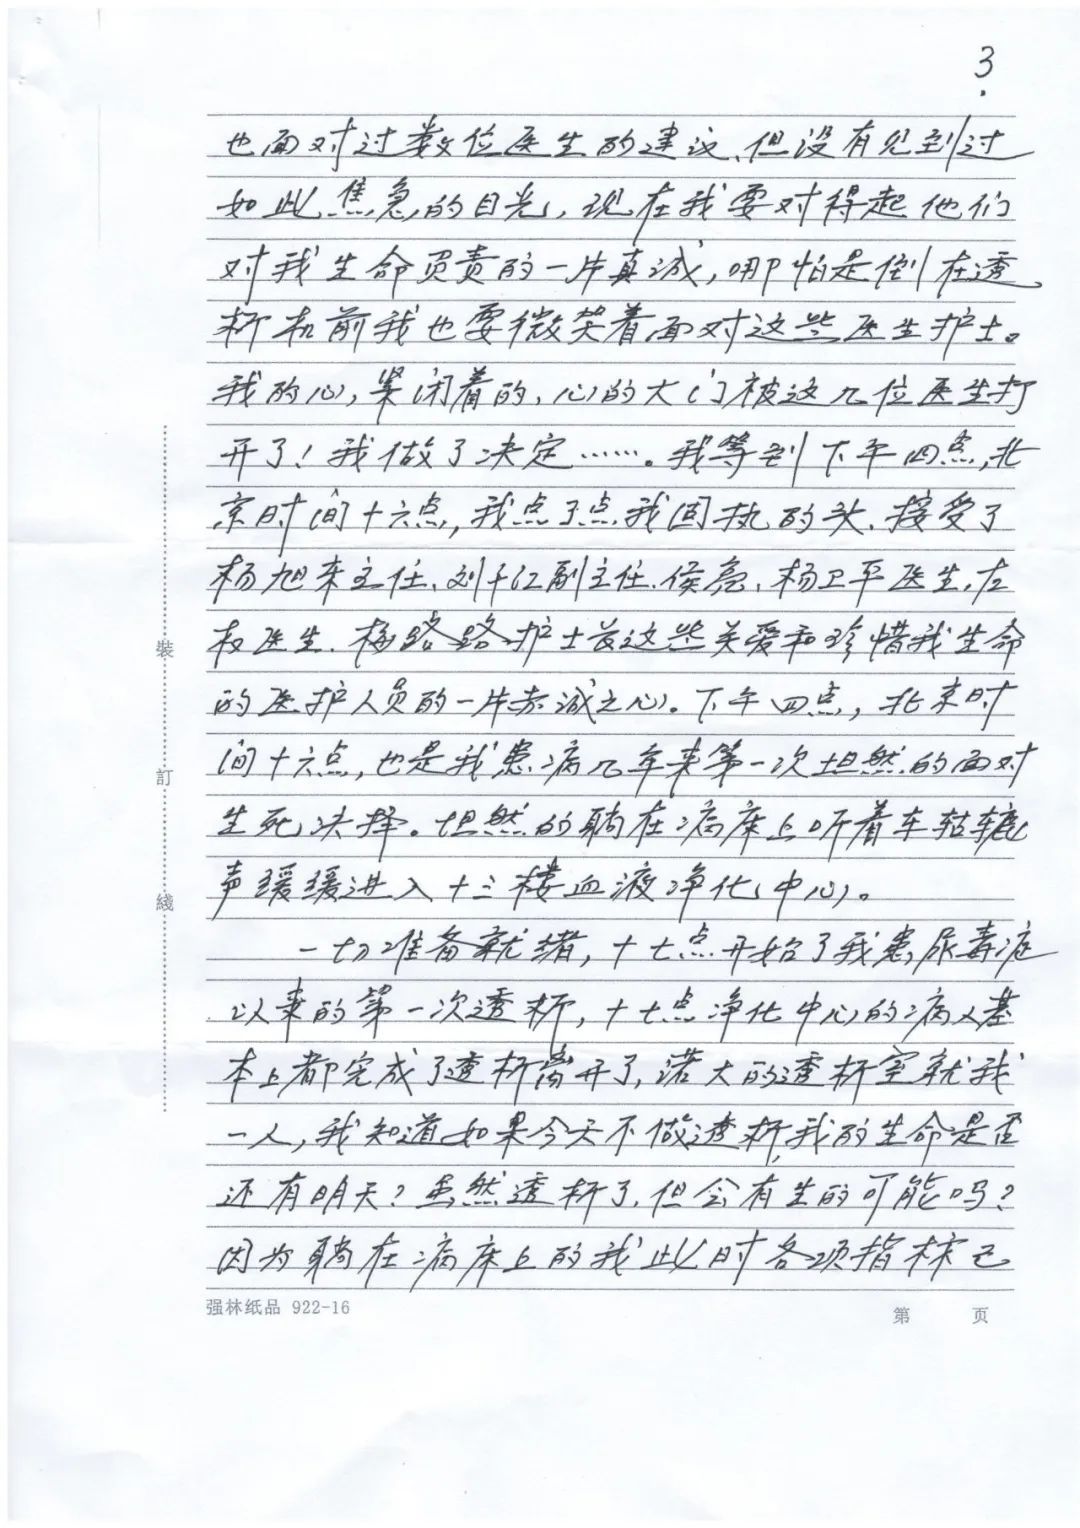 3.
也面对过数位医生的建议、但没有见到过
如此焦急的目光，现在我要对得起他们
对我生命负责的一片真诚，哪怕是倒在透
析机前我也要微笑着面对这些医生护士。
我的心，紧闭着的、心的大门被这几位医生打
开了！我做了决定……。我等到下午四点，北
京时间十六点，我点了点我固执的头、接受了
杨旭来主任、刘千江副主任、侯亮、杨卫平医生，左
权医生、梅路路护士长这些关爱和珍惜我生命
的医护人员的一片赤诚之心。下午四点，北京时
间十六点，也是我患病几年来第一次坦然的面对
生死决择。坦然的躺在病床上听着车轱辘
声缓缓进入十三楼血液净化中心。
一切准备就绪，十七点开始了我患尿毒症
以来的第一次透析，十七点净化中心的病人基
本上都完成了透析离开了，诺大的透析室就我
一人，我知道如果今天不做透析，我的生命是否
还有明天？虽然透析了，但会有生的可能吗？
因为躺在病床上的我此时各项指标已
裝
訂
綫
强林纸品 922-16
第 页